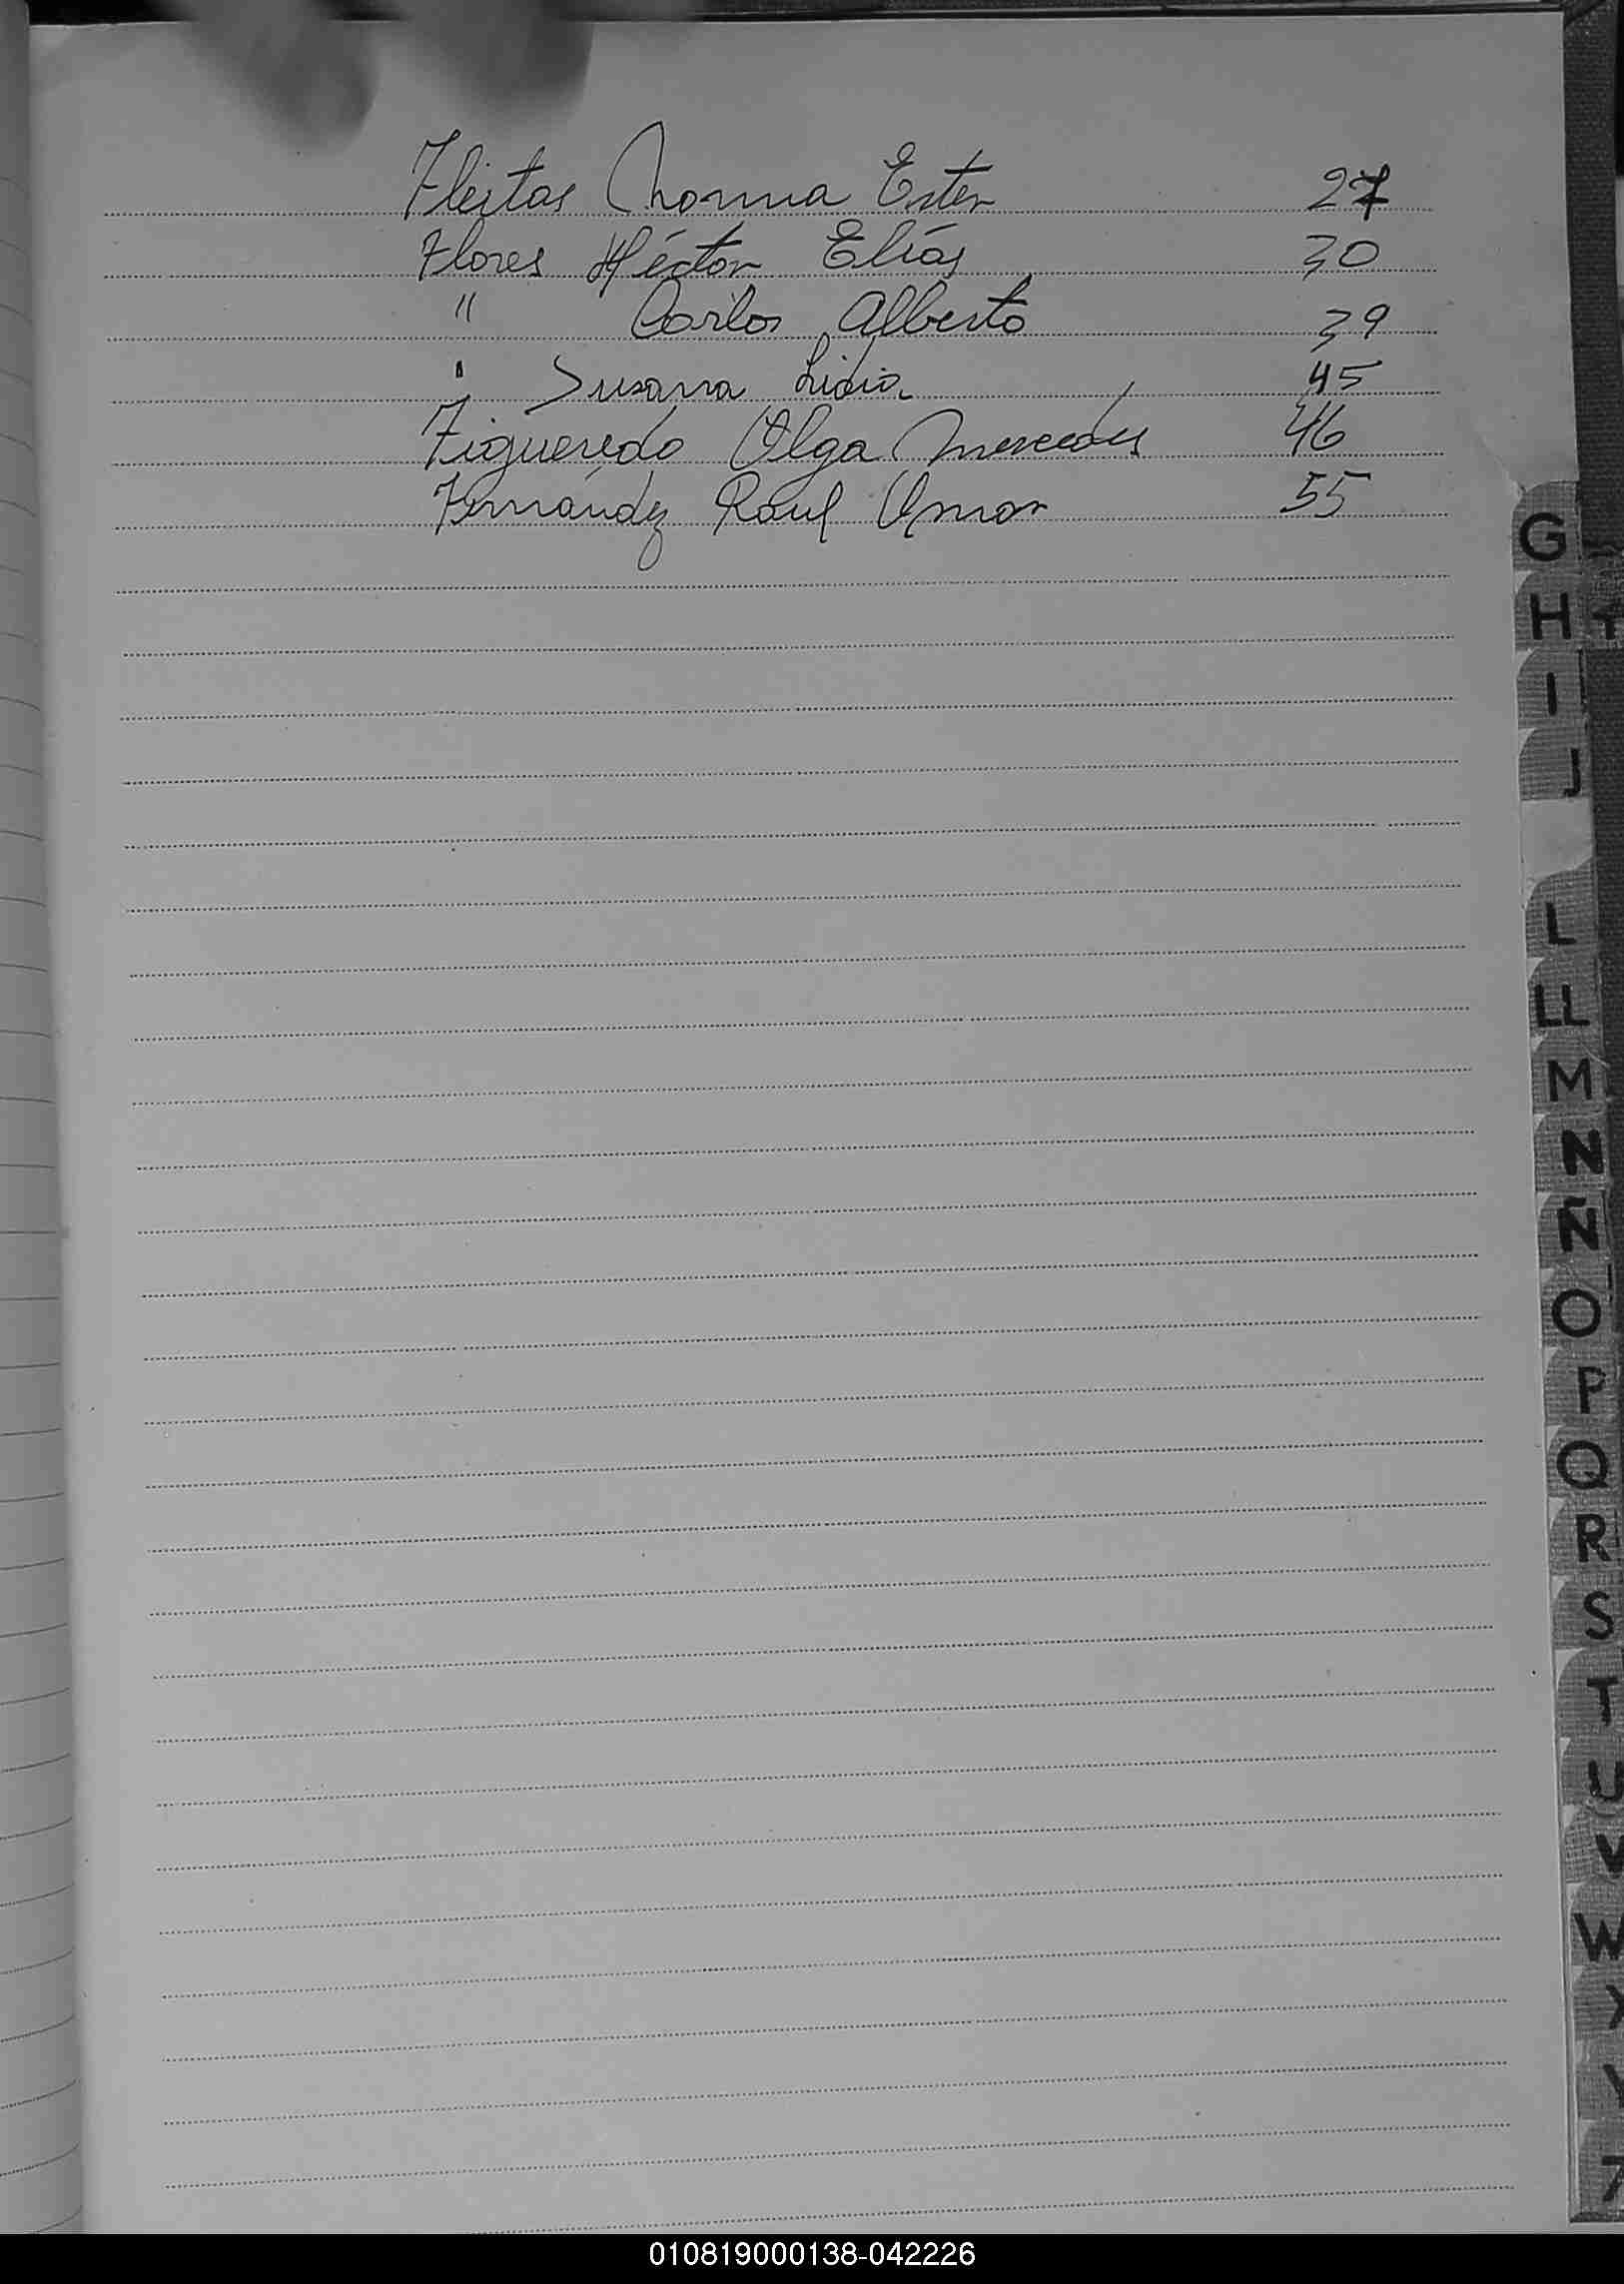 Fleitas Norma Ester 27
Flores Héctor Elías 30
" Carlos Alberto 39
" Susana Lidia 45
Figueredo Olga Mercedes 46
Fernández Raul Omar 55
G
H
I
J
L
LL
M
N
Ñ
O
P
Q
R
S
T
U
V
W
X
Y
Z
010819000138-042226